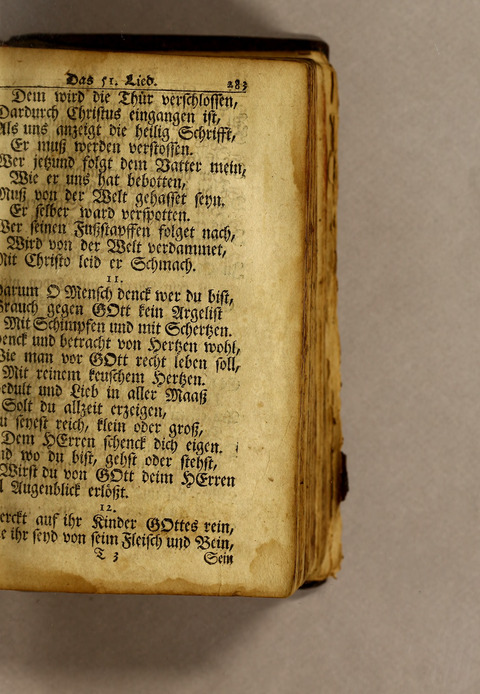 Das 51. Lied. 283
Dem wird die Thür verschlossen,
Dardurch Christus eingangen ist,
Als uns anzeigt die heilig Schrifft,
Er muß werden verstossen.
Wer jetzund folgt dem Vatter mein,
Wie er uns hat bebotten,
Muß von der Welt gehasset seyn.
Er selber ward verspotten.
Wer seinen Fußstapffen folget nach,
Wird von der Welt verdammet,
Mit Christo leid er Schmach.
11.
Darum O Mensch denck wer du bist,
Brauch gegen GOtt kein Argelist
Mit Schimpfen und mit Schertzen.
Denck und betracht von Hertzen wohl,
Wie man vor GOtt recht leben soll,
Mit reinem keuschem Hertzen.
Gedult und Lieb in aller Maaß
Solt du allzeit erzeigen,
Du seyest reich, klein oder groß,
Dem HErren schenck dich eigen.
Und wo du bist, gehst oder stehst,
Wirst du von GOtt deim HErren
Augenblick erlößt.
12.
Merckt auf ihr Kinder GOttes rein,
ihr seyd von seim Fleisch und Bein,
T 3 Sein